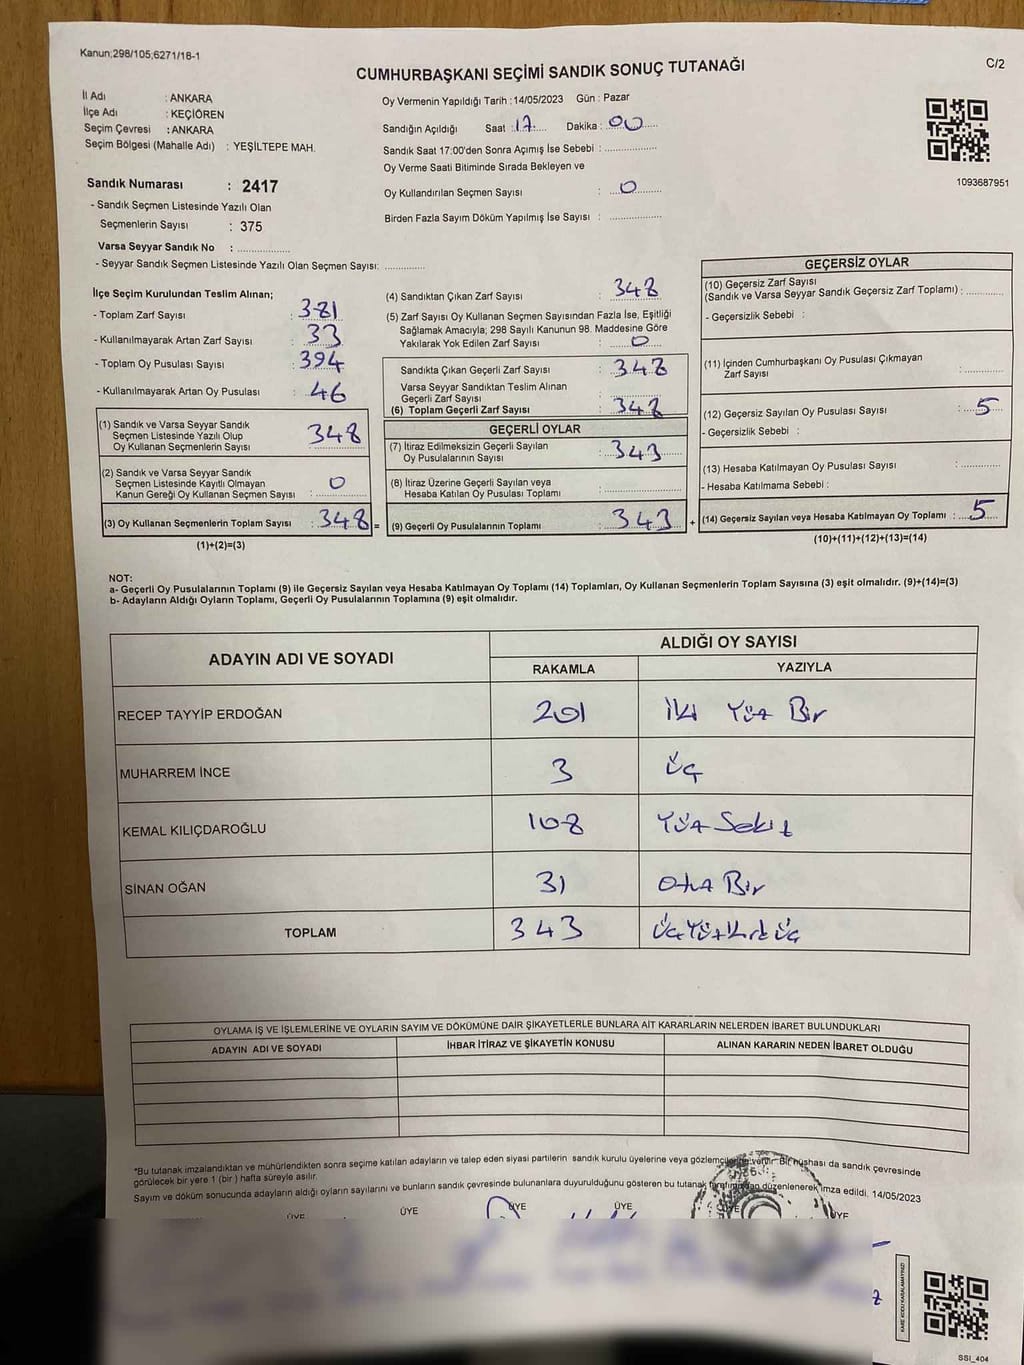 Kanun;298/105;6271/18-1
C/2
CUMHURBAŞKANI SEÇİMİ SANDIK SONUÇ TUTANAĞI
İl Adı : ANKARA
İlçe Adı : KEÇİÖREN
Seçim Çevresi : ANKARA
Seçim Bölgesi (Mahalle Adı) : YEŞİLTEPE MAH.
Sandık Numarası : 2417
- Sandık Seçmen Listesinde Yazılı Olan
Seçmenlerin Sayısı : 375
Varsa Seyyar Sandık No : ................
- Seyyar Sandık Seçmen Listesinde Yazılı Olan Seçmen Sayısı: ............
Oy Vermenin Yapıldığı Tarih :14/05/2023 Gün : Pazar
Sandığın Açıldığı Saat : 17 Dakika : 00
Sandık Saat 17:00'den Sonra Açımış İse Sebebi : ................
Oy Verme Saati Bitiminde Sırada Bekleyen ve
Oy Kullandırılan Seçmen Sayısı : 0
Birden Fazla Sayım Döküm Yapılmış İse Sayısı : ................
1093687951
İlçe Seçim Kurulundan Teslim Alınan;
- Toplam Zarf Sayısı : 381
- Kullanılmayarak Artan Zarf Sayısı : 33
- Toplam Oy Pusulası Sayısı : 394
- Kullanılmayarak Artan Oy Pusulası : 46
(1) Sandık ve Varsa Seyyar Sandık
Seçmen Listesinde Yazılı Olup
Oy Kullanan Seçmenlerin Sayısı : 348
(2) Sandık ve Varsa Seyyar Sandık
Seçmen Listesinde Kayıtlı Olmayan
Kanun Gereği Oy Kullanan Seçmen Sayısı : 0
(3) Oy Kullanan Seçmenlerin Toplam Sayısı : 348 =
(1)+(2)=(3)
(4) Sandıktan Çıkan Zarf Sayısı : 348
(5) Zarf Sayısı Oy Kullanan Seçmen Sayısından Fazla İse, Eşitliği
Sağlamak Amacıyla; 298 Sayılı Kanunun 98. Maddesine Göre
Yakılarak Yok Edilen Zarf Sayısı : 0
Sandıkta Çıkan Geçerli Zarf Sayısı : 348
Varsa Seyyar Sandıktan Teslim Alınan
Geçerli Zarf Sayısı : ................
(6) Toplam Geçerli Zarf Sayısı : 348
GEÇERLİ OYLAR
(7) İtiraz Edilmeksizin Geçerli Sayılan
Oy Pusulalarının Sayısı : 343
(8) İtiraz Üzerine Geçerli Sayılan veya
Hesaba Katılan Oy Pusulası Toplamı : ................
(9) Geçerli Oy Pusulalarının Toplamı : 343 +
GEÇERSİZ OYLAR
(10) Geçersiz Zarf Sayısı
(Sandık ve Varsa Seyyar Sandık Geçersiz Zarf Toplamı) : ............
- Geçersizlik Sebebi :
(11) İçinden Cumhurbaşkanı Oy Pusulası Çıkmayan
Zarf Sayısı : ............
(12) Geçersiz Sayılan Oy Pusulası Sayısı : 5
- Geçersizlik Sebebi :
(13) Hesaba Katılmayan Oy Pusulası Sayısı : ............
- Hesaba Katılmama Sebebi :
(14) Geçersiz Sayılan veya Hesaba Katılmayan Oy Toplamı : 5
(10)+(11)+(12)+(13)=(14)
NOT:
a- Geçerli Oy Pusulalarının Toplamı (9) ile Geçersiz Sayılan veya Hesaba Katılmayan Oy Toplamı (14) Toplamları, Oy Kullanan Seçmenlerin Toplam Sayısına (3) eşit olmalıdır. (9)+(14)=(3)
b- Adayların Aldığı Oyların Toplamı, Geçerli Oy Pusulalarının Toplamına (9) eşit olmalıdır.
ADAYIN ADI VE SOYADI ALDIĞI OY SAYISI
RAKAMLA YAZIYLA
RECEP TAYYİP ERDOĞAN 201 İki Yüz Bir
MUHARREM İNCE 3 Üç
KEMAL KILIÇDAROĞLU 108 Yüz Sekiz
SİNAN OĞAN 31 Otuz Bir
TOPLAM 343 ÜçYüzKırkÜç
OYLAMA İŞ VE İŞLEMLERİNE VE OYLARIN SAYIM VE DÖKÜMÜNE DAİR ŞİKAYETLERLE BUNLARA AİT KARARLARIN NELERDEN İBARET BULUNDUKLARI
ADAYIN ADI VE SOYADI İHBAR İTİRAZ VE ŞİKAYETİN KONUSU ALINAN KARARIN NEDEN İBARET OLDUĞU
*Bu tutanak imzalandıktan ve mühürlendikten sonra seçime katılan adayların ve talep eden siyasi partilerin sandık kurulu üyelerine veya gözlemcilerine verilir. Bir nüshası da sandık çevresinde
görülecek bir yere 1 (bir ) hafta süreyle asılır.
Sayım ve döküm sonucunda adayların aldığı oyların sayılarını ve bunların sandık çevresinde bulunanlara duyurulduğunu gösteren bu tutanak tarafımızdan düzenlenerek imza edildi. 14/05/2023
ÜYE ÜYE ÜYE ÜYE ÜYE ÜYE
KARE KODU KARALAMAYINIZ!
SSI_404